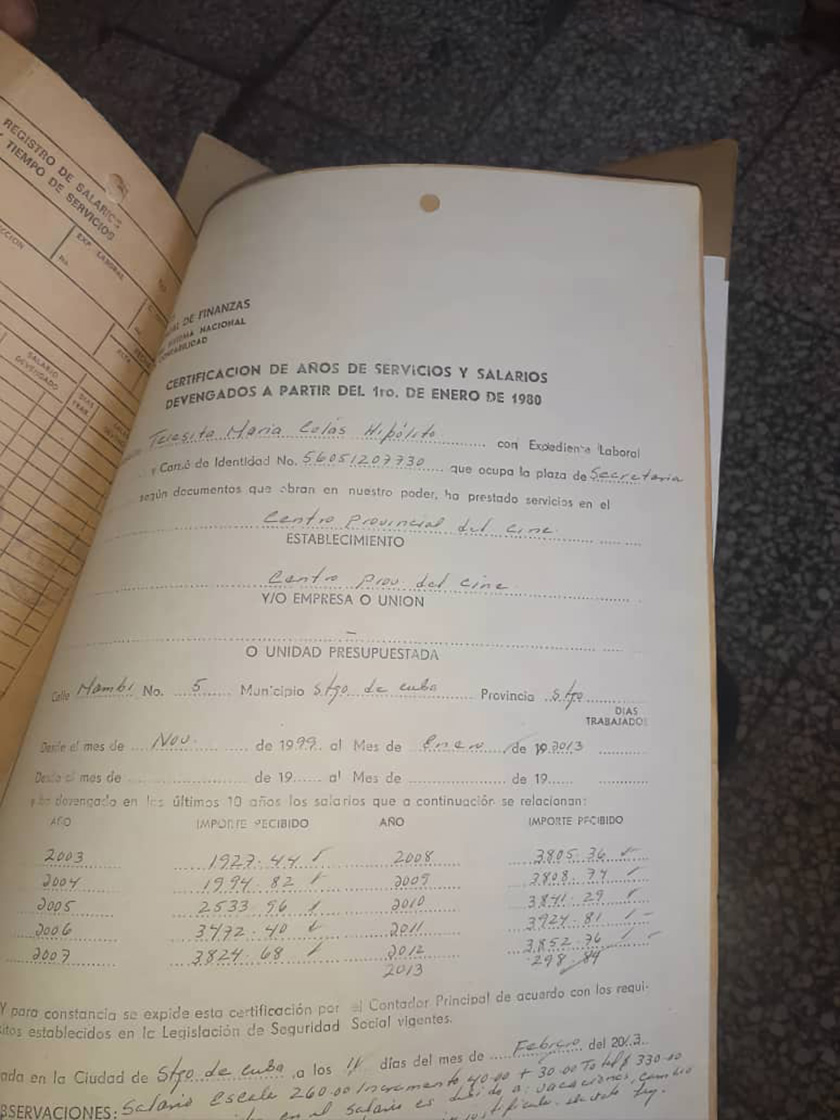 REGISTRO DE SALARIOS
Y TIEMPO DE SERVICIOS
EXP. LABORAL
No.
SALARIO
DEVENGADO
DIAS
TRAB.
DE FINANZAS
SISTEMA NACIONAL
CONTABILIDAD
CERTIFICACION DE AÑOS DE SERVICIOS Y SALARIOS
DEVENGADOS A PARTIR DEL 1ro. DE ENERO DE 1980
Teresita Maria Colás Hipólito con Expediente Laboral
y Carné de Identidad No. 56051207730 que ocupa la plaza de Secretaria
según documentos que obran en nuestro poder, ha prestado servicios en el
Centro Provincial del Cine
ESTABLECIMIENTO
Centro Prov. del Cine
Y/O EMPRESA O UNION
-
O UNIDAD PRESUPUESTADA
Calle Mambí No. 5 Municipio Stgo de Cuba Provincia Stgo
DIAS
TRABAJADOS
Desde el mes de Nov. de 1999 al Mes de Enero de 19 2013
Desde el mes de de 19 al Mes de de 19
y ha devengado en los últimos 10 años los salarios que a continuación se relacionan:
AÑO IMPORTE RECIBIDO AÑO IMPORTE RECIBIDO
2003 1927.44 2008 3805.36
2004 1994.82 2009 3808.74
2005 2533.96 2010 3841.29
2006 3472.40 2011 3924.81
2007 3824.68 2012 3852.76
2013 298.84
Y para constancia se expide esta certificación por el Contador Principal de acuerdo con los requi-
sitos establecidos en la Legislación de Seguridad Social vigentes.
Dada en la Ciudad de Stgo de Cuba a los 11 días del mes de Febrero del 2013
OBSERVACIONES: Salario Escala 260.00 Incremento 40.00 + 30.00 Total $ 330.00
en el salario es debido a: vacaciones, cambio